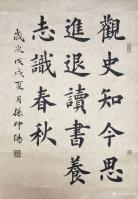 觀史知今思
進退讀書養
志識春秋
歲次戊戌夏月孫仲陽